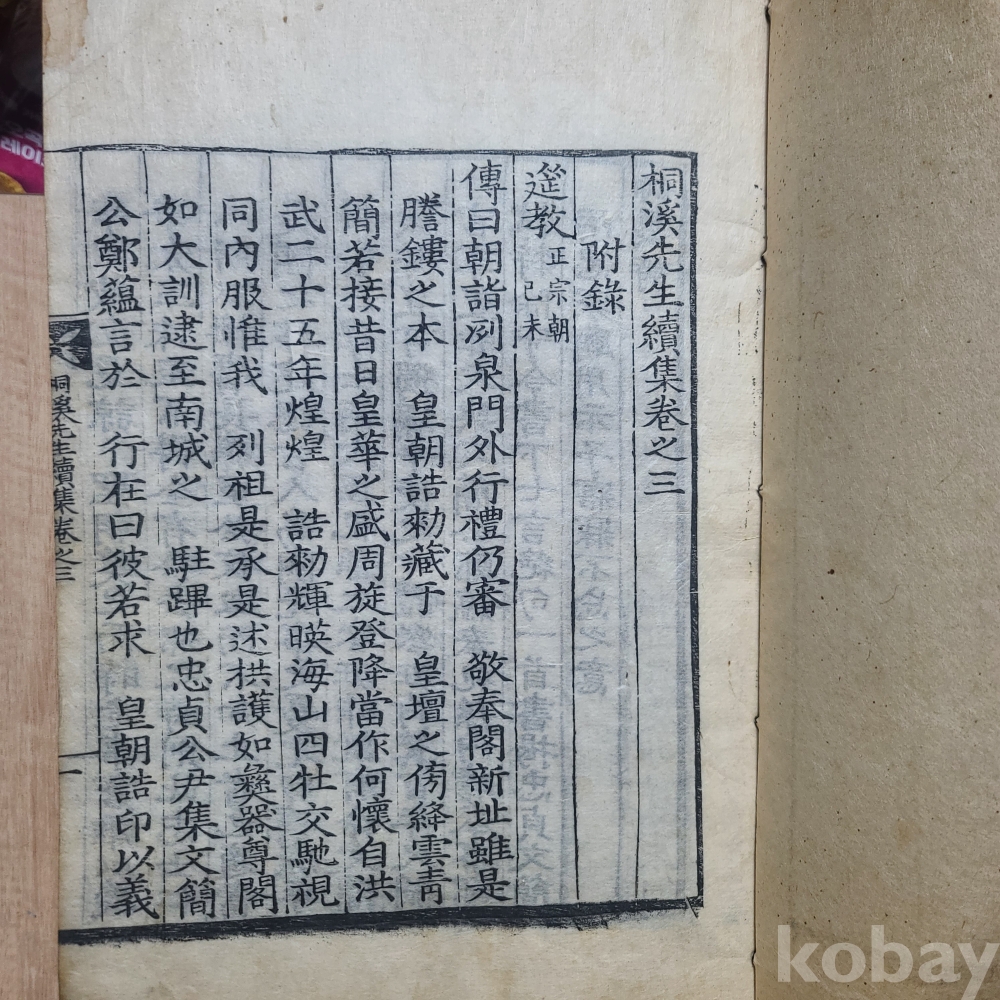 桐溪先生續集卷之三
附錄
筵教 正宗朝 己未
傳曰朝詣列泉門外行禮仍審 敬奉閣新址雖是
謄鏤之本 皇朝誥勅藏于 皇壇之傍絳雲靑
簡若接昔日皇華之盛周旋登降當作何懷自洪
武二十五年煌煌 誥勅輝暎海山四牡交馳視
同內服惟我 列祖是承是述拱護如彛器尊閣
如大訓逮至南城之 駐蹕也忠貞公尹集文簡
公鄭蘊言於 行在曰彼若求 皇朝誥印以義
桐溪先生續集卷之三
一
레이
kobay